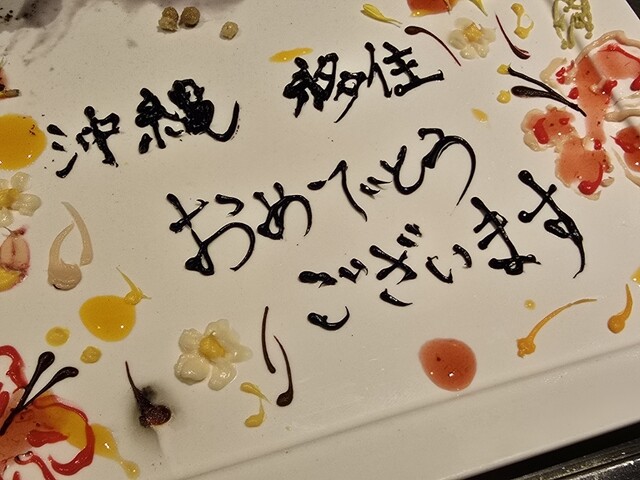 沖縄 移住
おめでとう
ございます